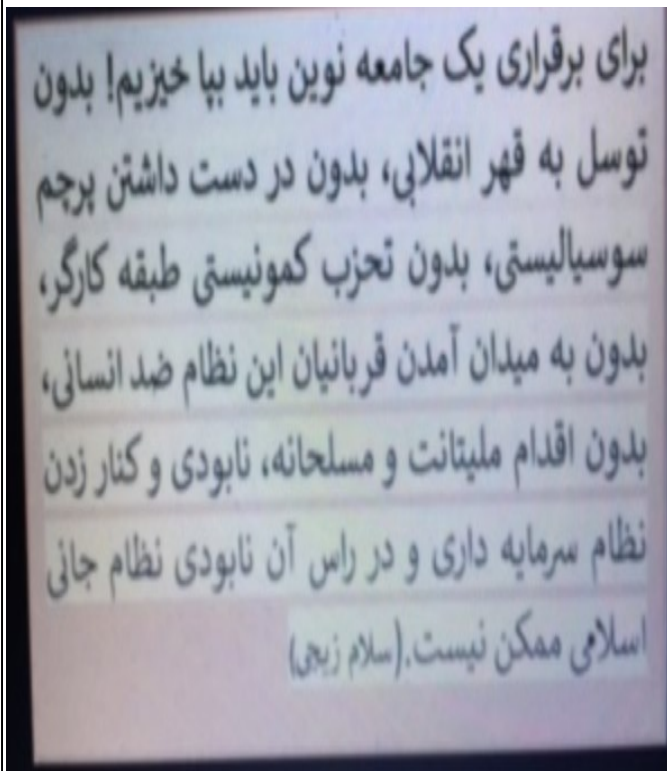 برای برقراری یک جامعه نوین باید بپا خیزیم! بدون
توسل به قهر انقلابی، بدون در دست داشتن پرچم
سوسیالیستی، بدون تحزب کمونیستی طبقه کارگر،
بدون به میدان آمدن قربانیان این نظام ضد انسانی،
بدون اقدام ملیتانت و مسلحانه، نابودی و کنار زدن
نظام سرمایه داری و در راس آن نابودی نظام جانی
اسلامی ممکن نیست.(سلام زیجی)